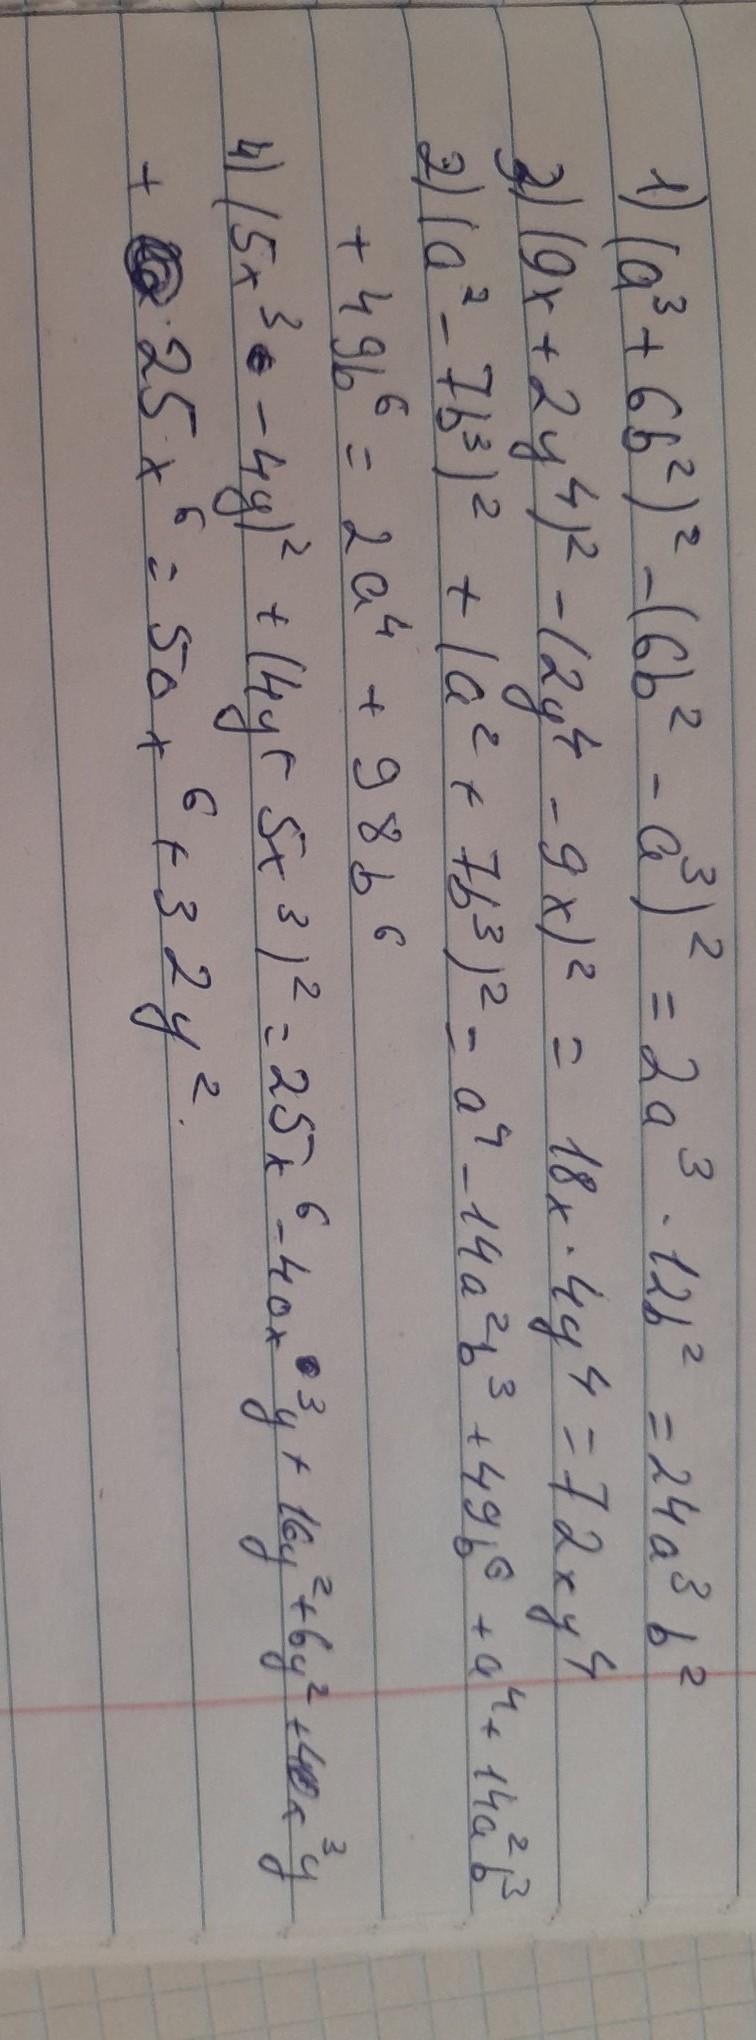 1) (a³ + 6b²)² - (6b² - a³)² = 2a³ · 12b² = 24a³b²
3) (9x + 2y⁴)² - (2y⁴ - 9x)² = 18x · 4y⁴ = 72xy⁴
2) (a² - 7b³)² + (a² + 7b³)² = a⁴ - 14a²b³ + 49b⁶ + a⁴ + 14a²b³
+ 49b⁶ = 2a⁴ + 98b⁶
4) (5x³ - 4y)² + (4y + 5x³)² = 25x⁶ - 40x³y + 16y² + 6y² + 40x³y
+ 25x⁶ = 50x⁶ + 32y².